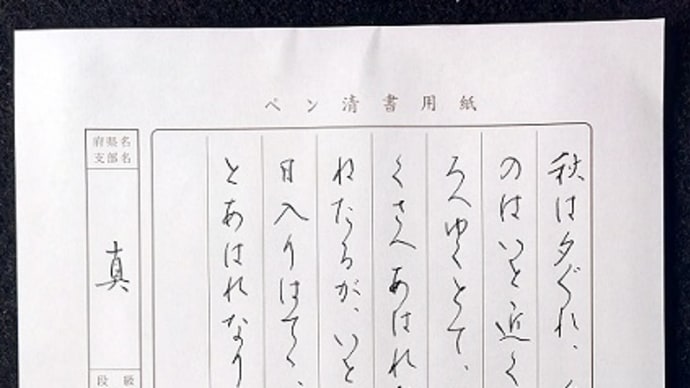 ペン清書用紙
秋は夕ぐれ、
のはいと近く
ろへゆくとて、
くさへあはれ
ねたるが、いと
日入りはてゝ、
とあはれなり
府県名
支部名
真
段級